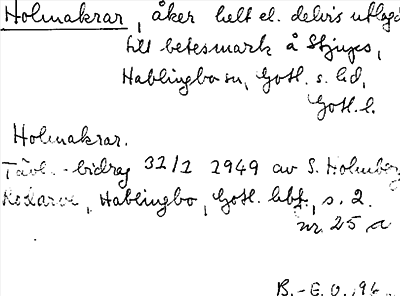 Holmakrar, åker helt el. delvis utlagd
till betesmark å Stjups,
Hablingbo sn, Gotl. s. hd,
Gotl. l.
Holmakrar.
Tävl.-bidrag 31/1 1949 av S. Holmberg
Hablingbo, Gotl. hbf, s. 2.
nr 25 a
B.-E. O.